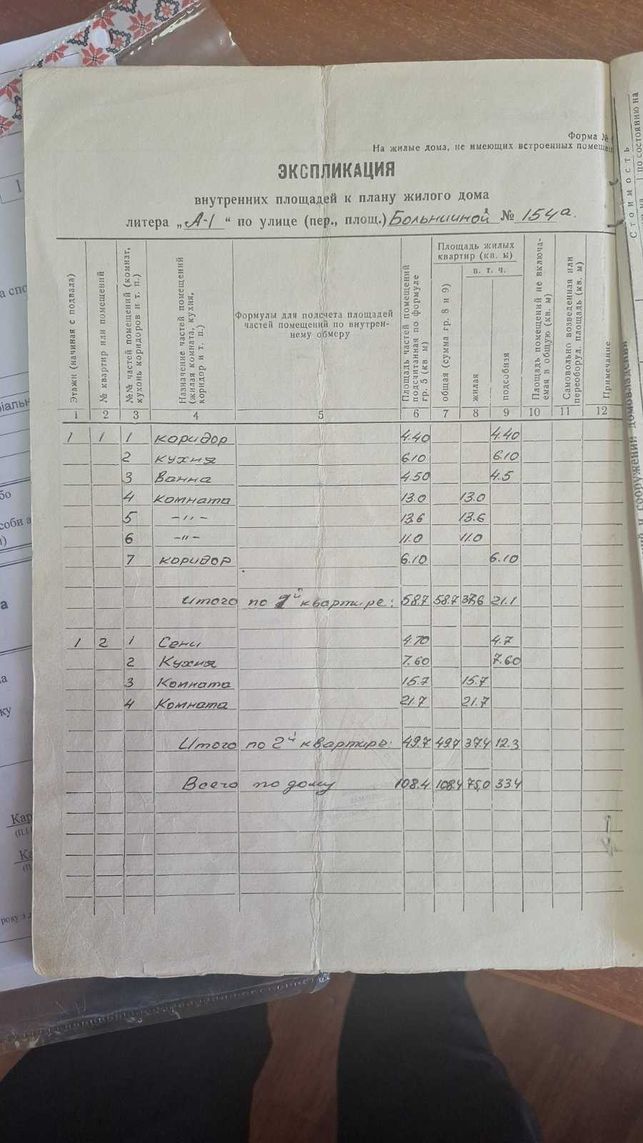 Форма №
На жилые дома, не имеющих встроенных помещ
ЭКСПЛИКАЦИЯ
внутренних площадей к плану жилого дома
литера „А-I“ по улице (пер., площ.) Больничной № 154а.
Этажи (начиная с подвала)
№ квартир или помещений
№№ частей помещений (комнат, кухонь коридоров и т. п.)
Назначение частей помещений (жилая комната, кухня, коридор и т. п.)
Формулы для подсчета площадей частей помещений по внутреннему обмеру
Площадь частей помещений подсчитанная по формуле гр. 5 (кв. м)
Площадь жилых квартир (кв. м)
общая (сумма гр. 8 и 9)
в. т. ч.
жилая
подсобная
Площадь помещений не включаемая в общую (кв. м)
Самовольно возведенная или переоборуд. площадь (кв. м)
Примечание
1 2 3 4 5 6 7 8 9 10 11 12
1 1 1 коридор 4.40 4.40
2 кухня 6.10 6.10
3 Ванна 4.50 4.5
4 комната 13.0 13.0
5 -"- 13.6 13.6
6 -"- 11.0 11.0
7 коридор 6.10 6.10
Итого по 1й квартире: 58.7 58.7 37.6 21.1
1 2 1 Сени 4.70 4.7
2 Кухня 7.60 7.60
3 Комната 15.7 15.7
4 Комната 21.7 21.7
Итого по 2й квартире: 49.7 49.7 37.4 12.3
Всего по дому 108.4 108.4 75.0 33.4
Стоимость
по состоянию на
и сооружений домовладения